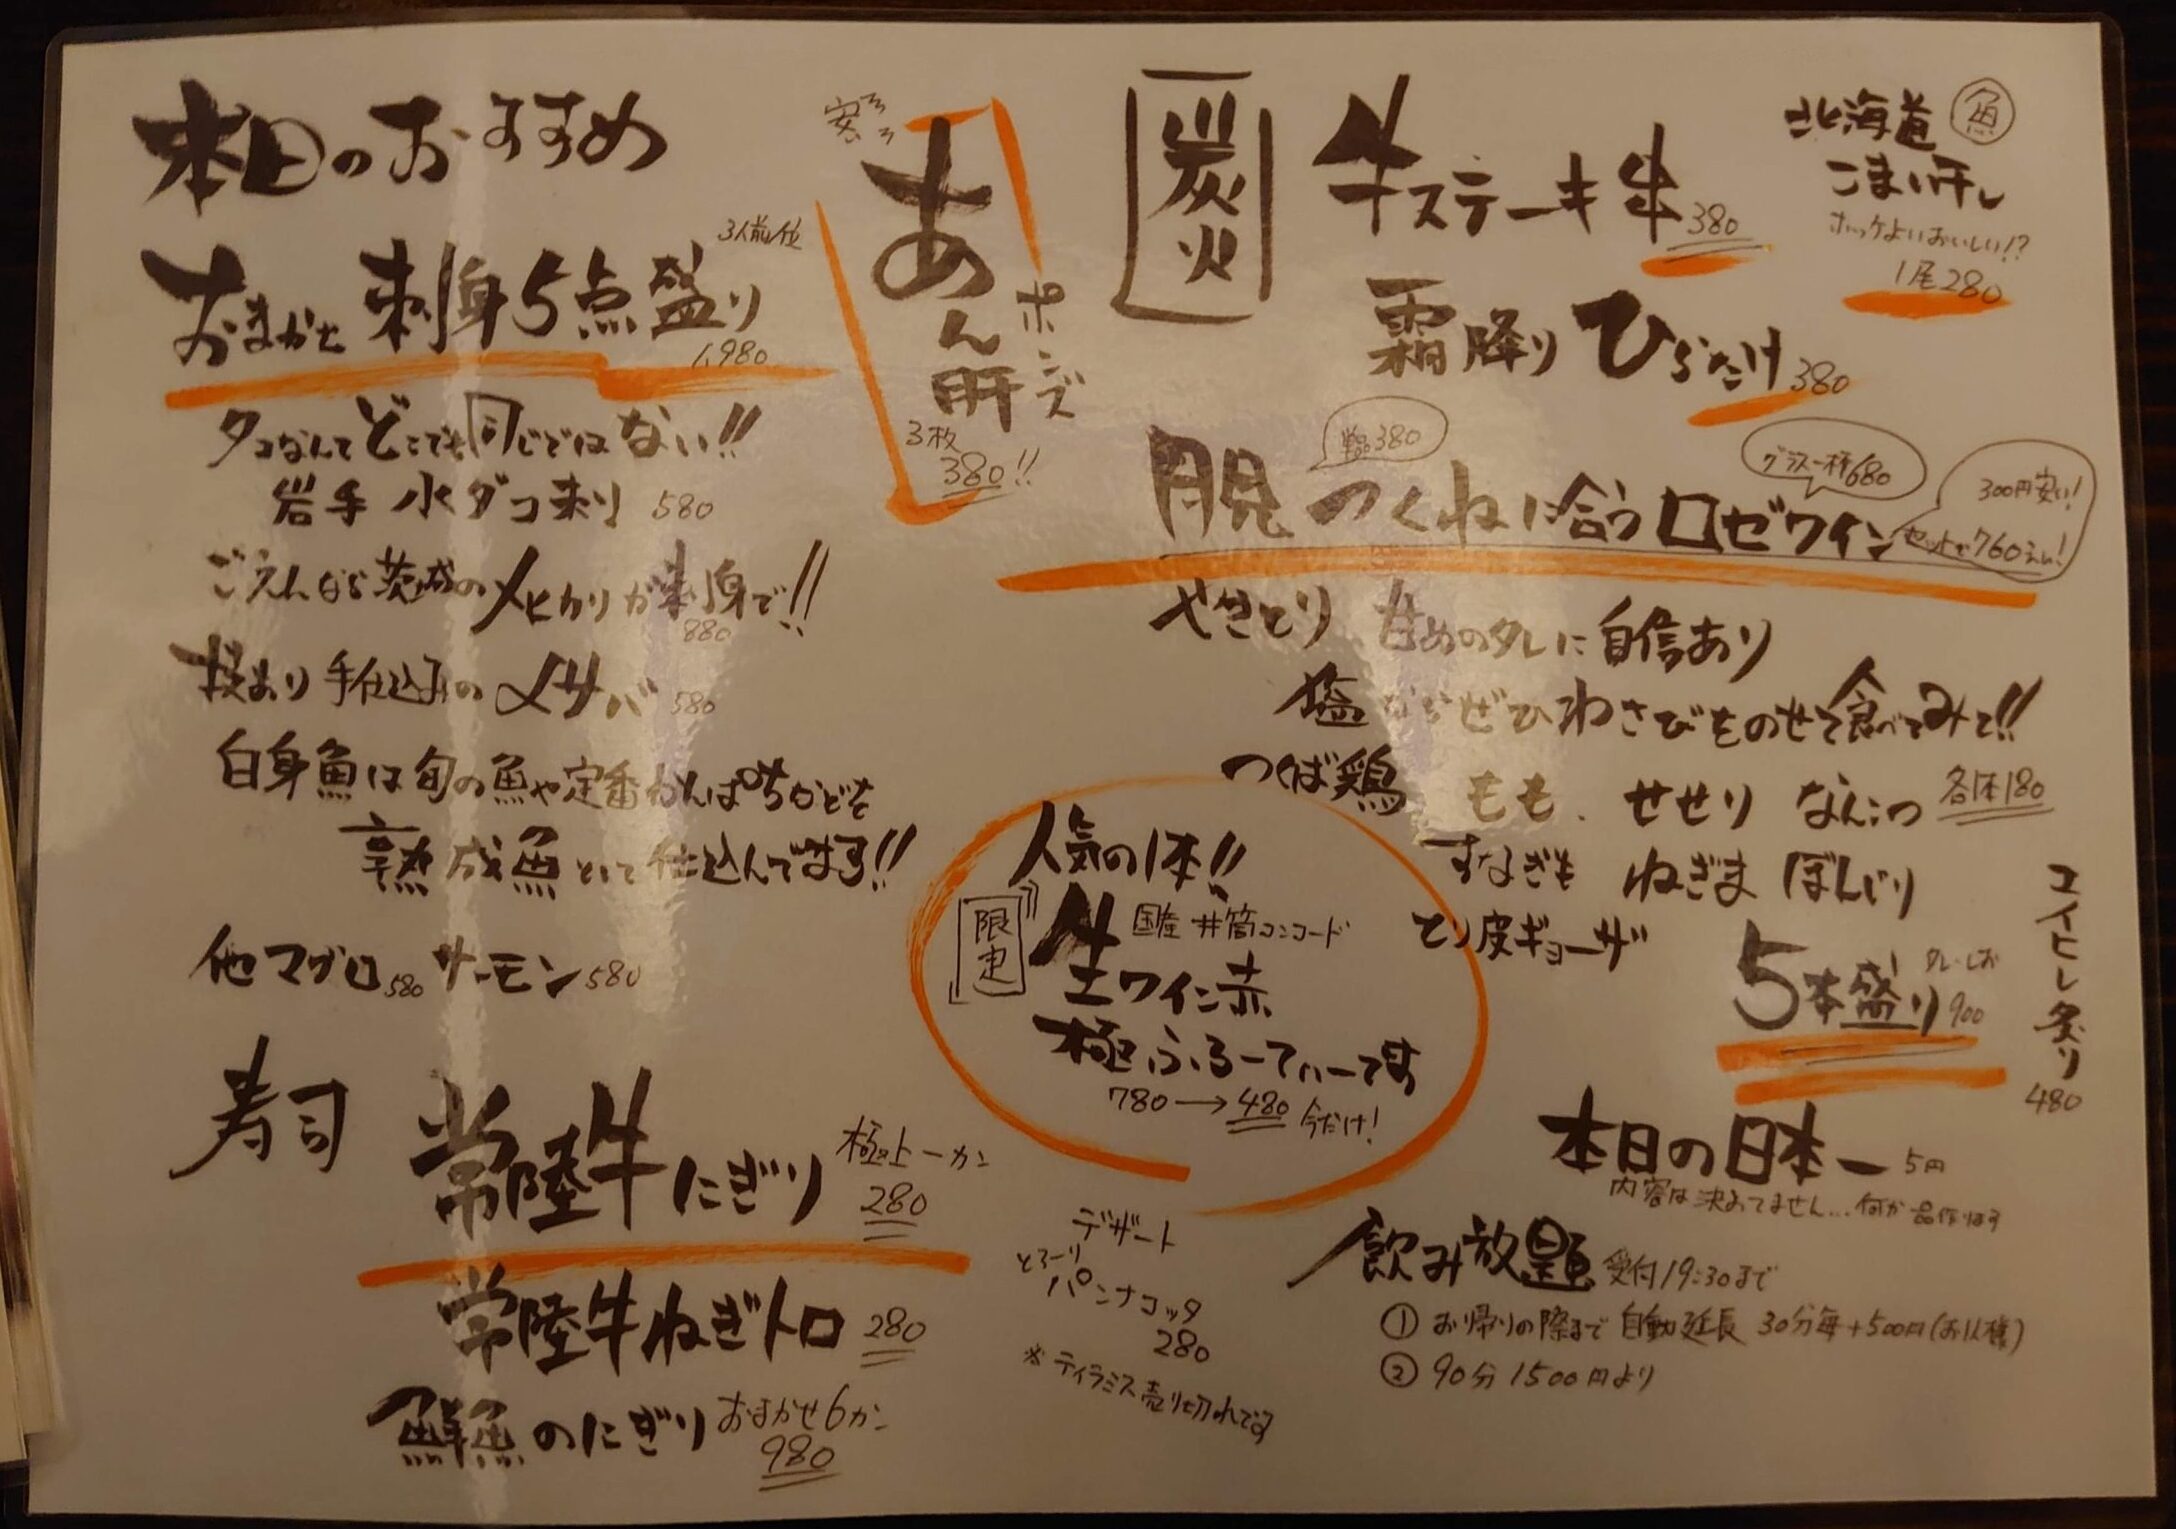 本日のおすすめ
おまかせ 刺身5点盛り 3人前位
1,980
タコなんてどこでも同じではない!!
岩手 水ダコ刺 580
茨城のメヒカリが刺身で!!
880
技あり 手仕込みの 〆サバ 580
白身魚は旬の魚や定番かんぱちなどを
熟成魚として仕込んでます!!
他マグロ580 サーモン580
寿司
常陸牛にぎり 極上一カン
280
常陸牛ねぎトロ 280
鮮魚のにぎり おまかせ6カン
980
安っ
あん肝
ポンズ
3枚
380!!
炭火
牛ステーキ串 380
霜降りひらたけ 380
北海道 魚
こまい干し
ホッケよりおいしい!?
1尾280
単品380
グラス一杯680
300円安い!
セットで760えん!
つくねに合うロゼワイン
やきとり 甘めのタレに自信あり
塩ならぜひわさびをのせて食べてみて!!
つくば鶏 もも、せせり なんこつ 各1本180
すなぎも ねぎま ぼんじり
とり皮ギョーザ
5本盛り タレ・しお
900
エイヒレ炙り
480
人気の1本!!
限定
国産 井筒コンコード
生ワイン赤
極ふるーてぃーです
780→480 今だけ!
デザート
とろーり
パンナコッタ
280
※ティラミス売り切れです
本日の日本一 5円
内容は決めてません...何か一品作ります
飲み放題 受付19:30まで
① お帰りの際まで自動延長 30分毎+500円(お1人様)
② 90分1500円より